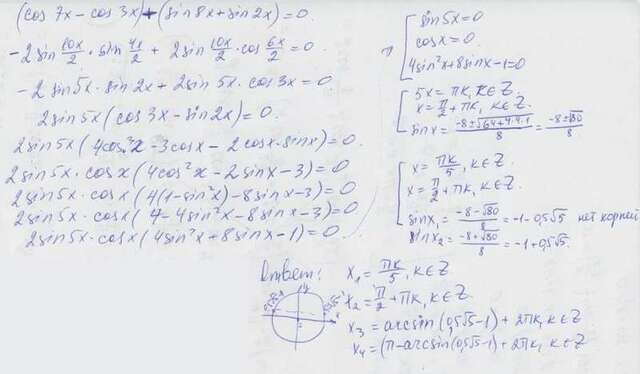 (cos 7x - cos 3x) + (sin 8x + sin 2x) = 0.
-2 sin 10x/2 · sin 4x/2 + 2 sin 10x/2 · cos 6x/2 = 0.
-2 sin 5x · sin 2x + 2 sin 5x · cos 3x = 0.
2 sin 5x (cos 3x - sin 2x) = 0.
2 sin 5x (4cos³x - 3cosx - 2cosx·sinx) = 0.
2 sin 5x · cosx (4cos²x - 2sinx - 3) = 0
2 sin 5x · cosx (4(1-sin²x) - 8sinx - 3) = 0
2 sin 5x · cosx (4 - 4sin²x - 8sinx - 3) = 0.
2 sin 5x · cosx (4sin²x + 8sinx - 1) = 0.
sin 5x = 0
cosx = 0
4sin²x + 8sinx - 1 = 0
5x = πk, k∈Z.
x = π/2 + πk, k∈Z.
sinx = (-8 ± √(64+4·4·1))/8 = (-8 ± √80)/8
x = πk/5, k∈Z.
x = π/2 + πk, k∈Z.
sinx₁ = (-8 - √80)/8 = -1 - 0,5√5 нет корней
sinx₂ = (-8 + √80)/8 = -1 + 0,5√5.
Ответ: x₁ = πk/5, k∈Z
x₂ = π/2 + πk, k∈Z.
x₃ = arcsin (0,5√5 - 1) + 2πk, k∈Z
x₄ = (π - arcsin (0,5√5 - 1) + 2πk, k∈Z